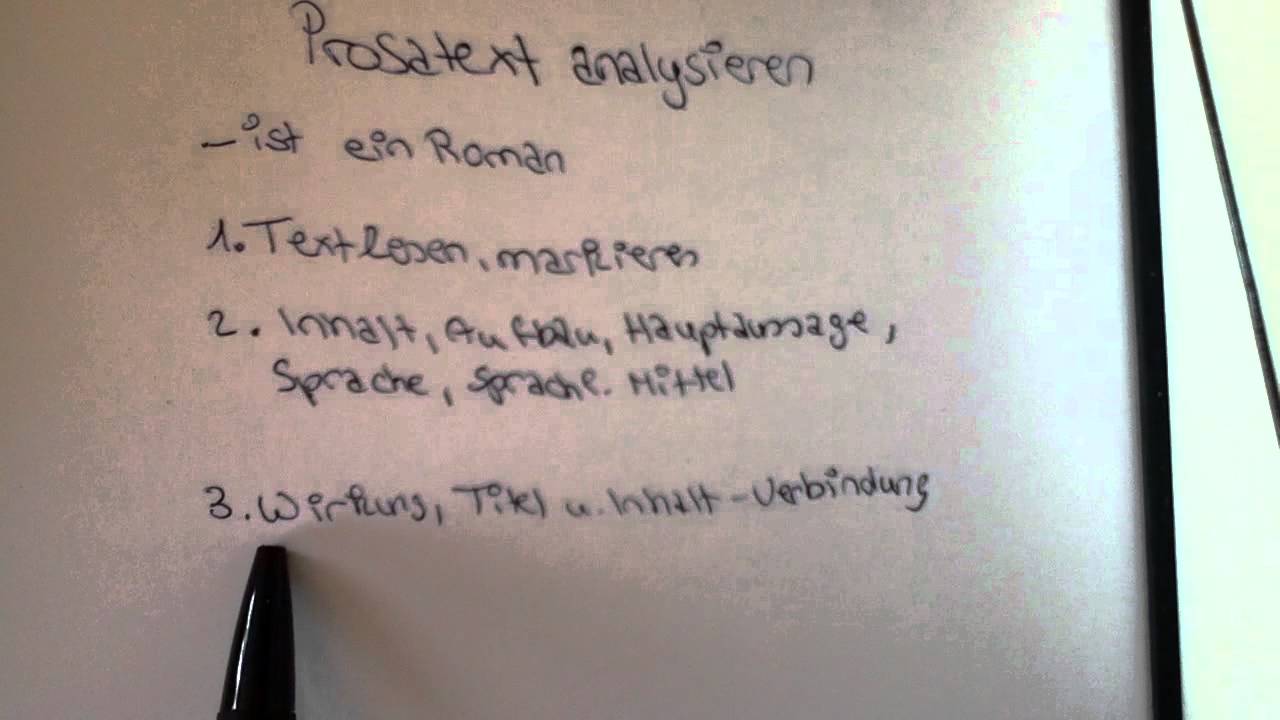 Prosatext analysieren
- ist ein Roman
1. Text lesen, markieren
2. Inhalt, Aufbau, Hauptaussage,
Sprache, Sprache. Mittel
3. Wirkung, Titel u. Inhalt - Verbindung